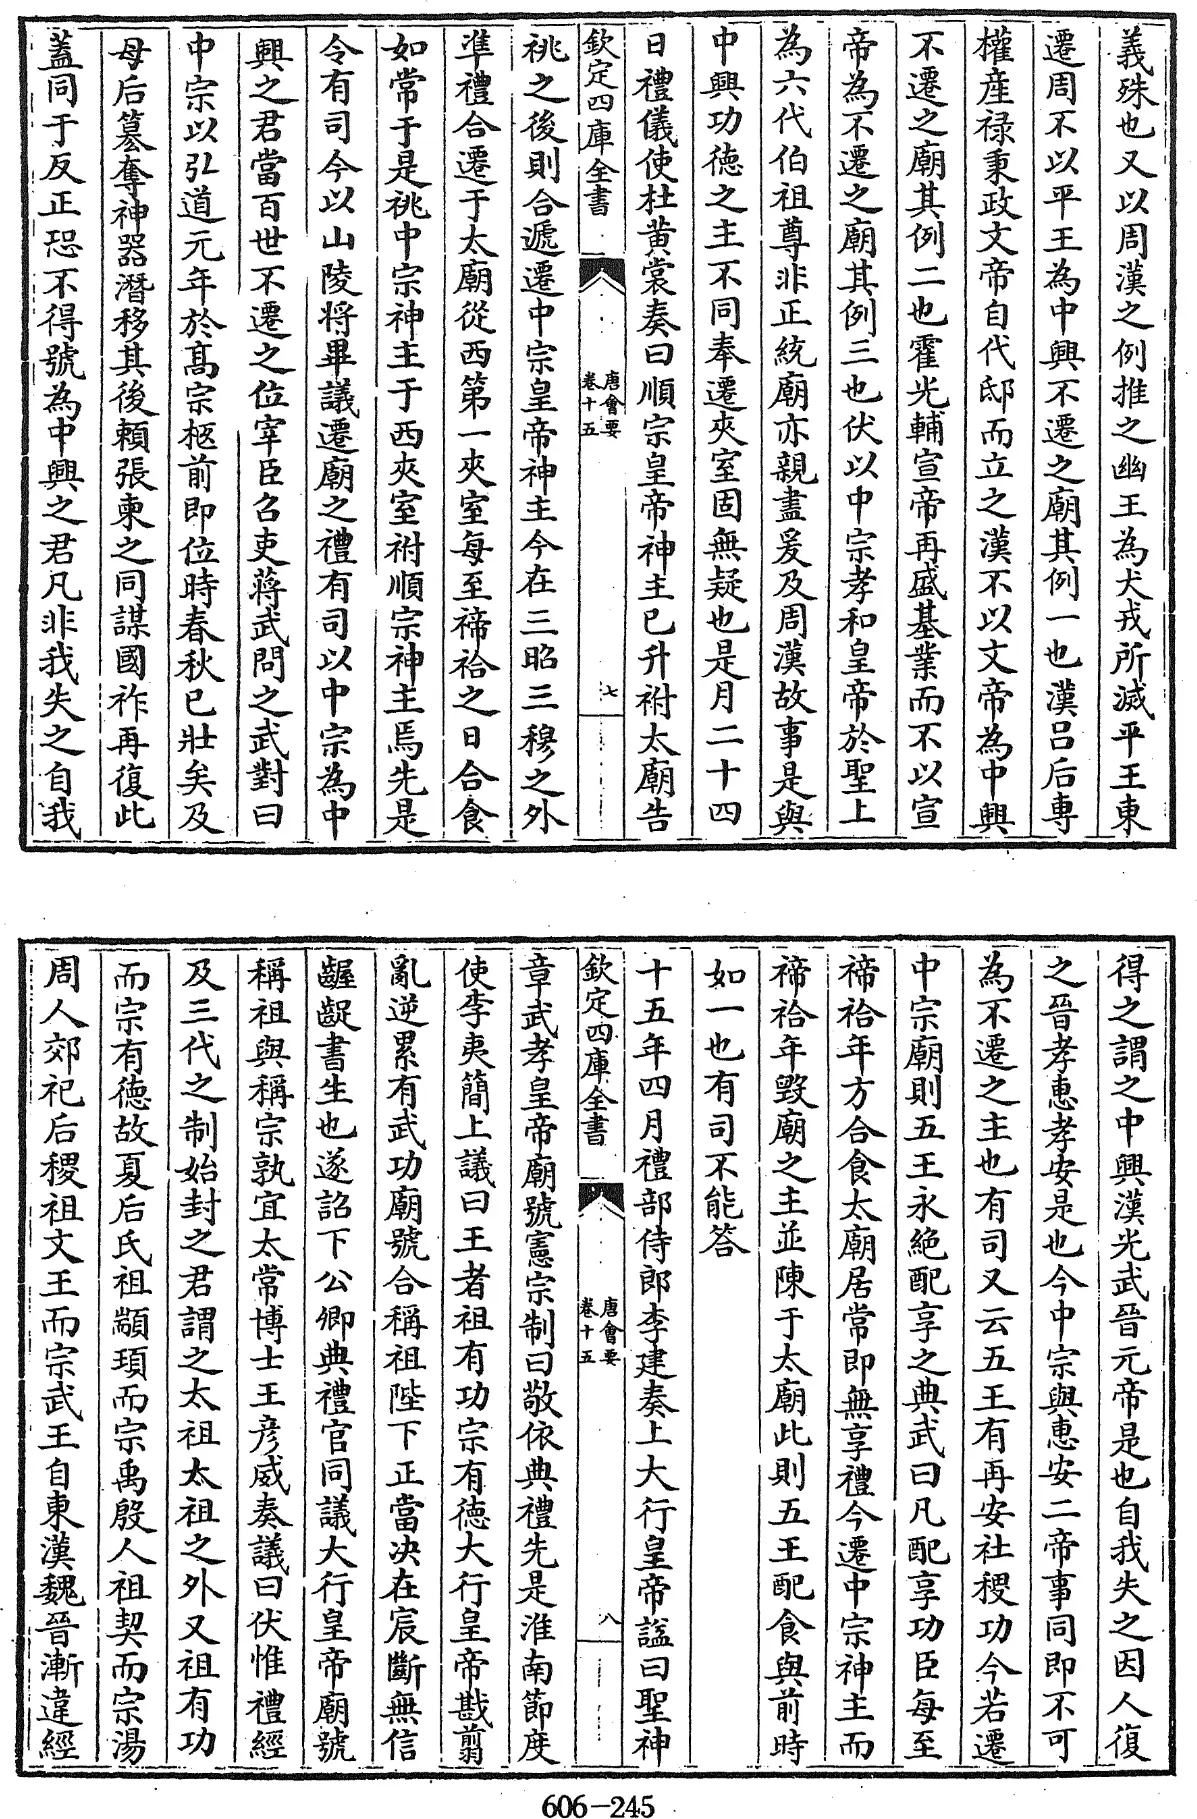 義殊也又以周漢之例推之幽王為犬戎所滅平王東
遷周不以平王為中興不遷之廟其例一也漢呂后專
權産禄秉政文帝自代邸而立之漢不以文帝為中興
不遷之廟其例二也霍光輔宣帝再盛基業而不以宣
帝為不遷之廟其例三也伏以中宗孝和皇帝於聖上
為六代伯祖尊非正統廟亦親盡爰及周漢故事是與
中興功德之主不同奉遷夾室固無疑也是月二十四
日禮儀使杜黄裳奏曰順宗皇帝神主已升祔太廟告
欽定四庫全書
唐會要
卷十五
七
祧之後則合遞遷中宗皇帝神主今在三昭三穆之外
準禮合遷于太廟從西第一夾室每至禘祫之日合食
如常于是祧中宗神主于西夾室祔順宗神主焉先是
令有司今以山陵将畢議遷廟之禮有司以中宗為中
興之君當百世不遷之位宰臣召吏蔣武問之武對曰
中宗以弘道元年於髙宗柩前即位時春秋已壯矣及
母后簒奪神器潛移其後頼張柬之同謀國祚再復此
蓋同于反正恐不得號為中興之君凡非我失之自我
得之謂之中興漢光武晉元帝是也自我失之因人復
之晉孝惠孝安是也今中宗與惠安二帝事同即不可
為不遷之主也有司又云五王有再安社稷功今若遷
中宗廟則五王永絶配享之典武曰凡配享功臣每至
禘祫年方合食太廟居常即無享禮今遷中宗神主而
禘祫年毁廟之主並陳于太廟此則五王配食與前時
如一也有司不能答
十五年四月禮部侍郎李建奏上大行皇帝諡曰聖神
欽定四庫全書
唐會要
卷十五
八
章武孝皇帝廟號憲宗制曰敬依典禮先是淮南節度
使李夷簡上議曰王者祖有功宗有徳大行皇帝戡翦
亂逆累有武功廟號合稱祖陛下正當决在宸斷無信
齷齪書生也遂詔下公卿典禮官同議大行皇帝廟號
稱祖與稱宗孰宜太常博士王彦威奏議曰伏惟禮經
及三代之制始封之君謂之太祖太祖之外又祖有功
而宗有徳故夏后氏祖顓頊而宗禹殷人祖契而宗湯
周人郊祀后稷祖文王而宗武王自東漢魏晉漸違經
606-245